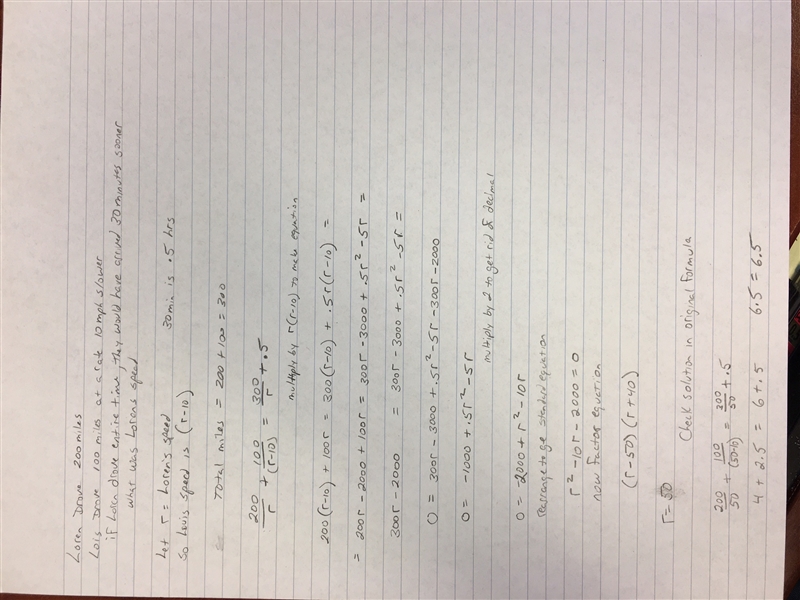 Loren Drove 200 miles
Lois Drove 100 miles at a rate 10 mph slower
if Loren drove entire time, they would have arrived 30 minutes sooner
what was Lorens spead
Let r = Loren's speed 30 min is .5 hrs
So Louis speed is (r-10)
Total miles = 200 + 100 = 300
200/r + 100/(r-10) = 300/r + .5
multiply by r(r-10) to make equation
200(r-10) + 100r = 300(r-10) + .5r(r-10) =
= 200r - 2000 + 100r = 300r - 3000 + .5r² - 5r =
300r - 2000 = 300r - 3000 + .5r² - 5r =
0 = 300r - 3000 + .5r² - 5r - 300r - 2000
0 = -1000 + .5r² - 5r
multiply by 2 to get rid of decimal
0 = -2000 + r² - 10r
rearrange to ge standard equation
r² - 10r - 2000 = 0
now factor equation
(r-50)(r+40)
r = 50
Check solution in original formula
200/50 + 100/(50-10) = 300/50 + .5
4 + 2.5 = 6 + .5 6.5 = 6.5